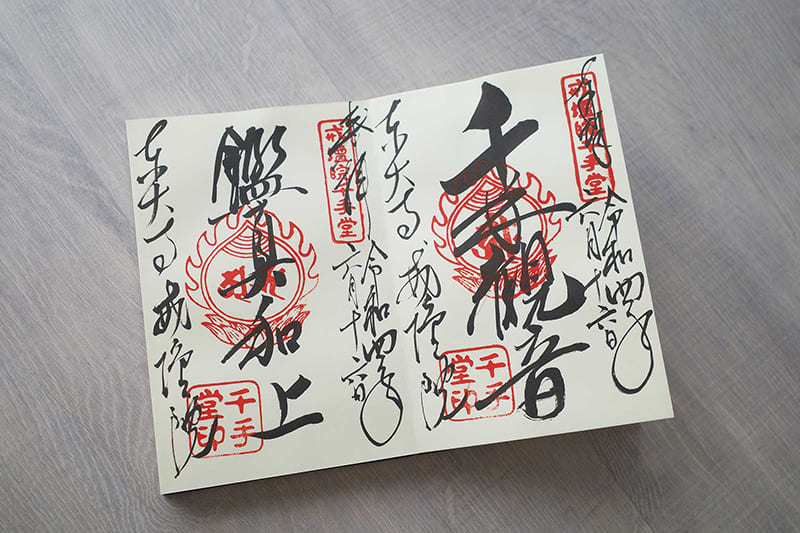 奉拝
戒壇院千手堂
令和四年
六月十六日
千手観音
千手堂印
東大寺
戒壇院
奉拝
戒壇院千手堂
令和四年
六月十六日
鑑真和上
千手堂印
東大寺
戒壇院